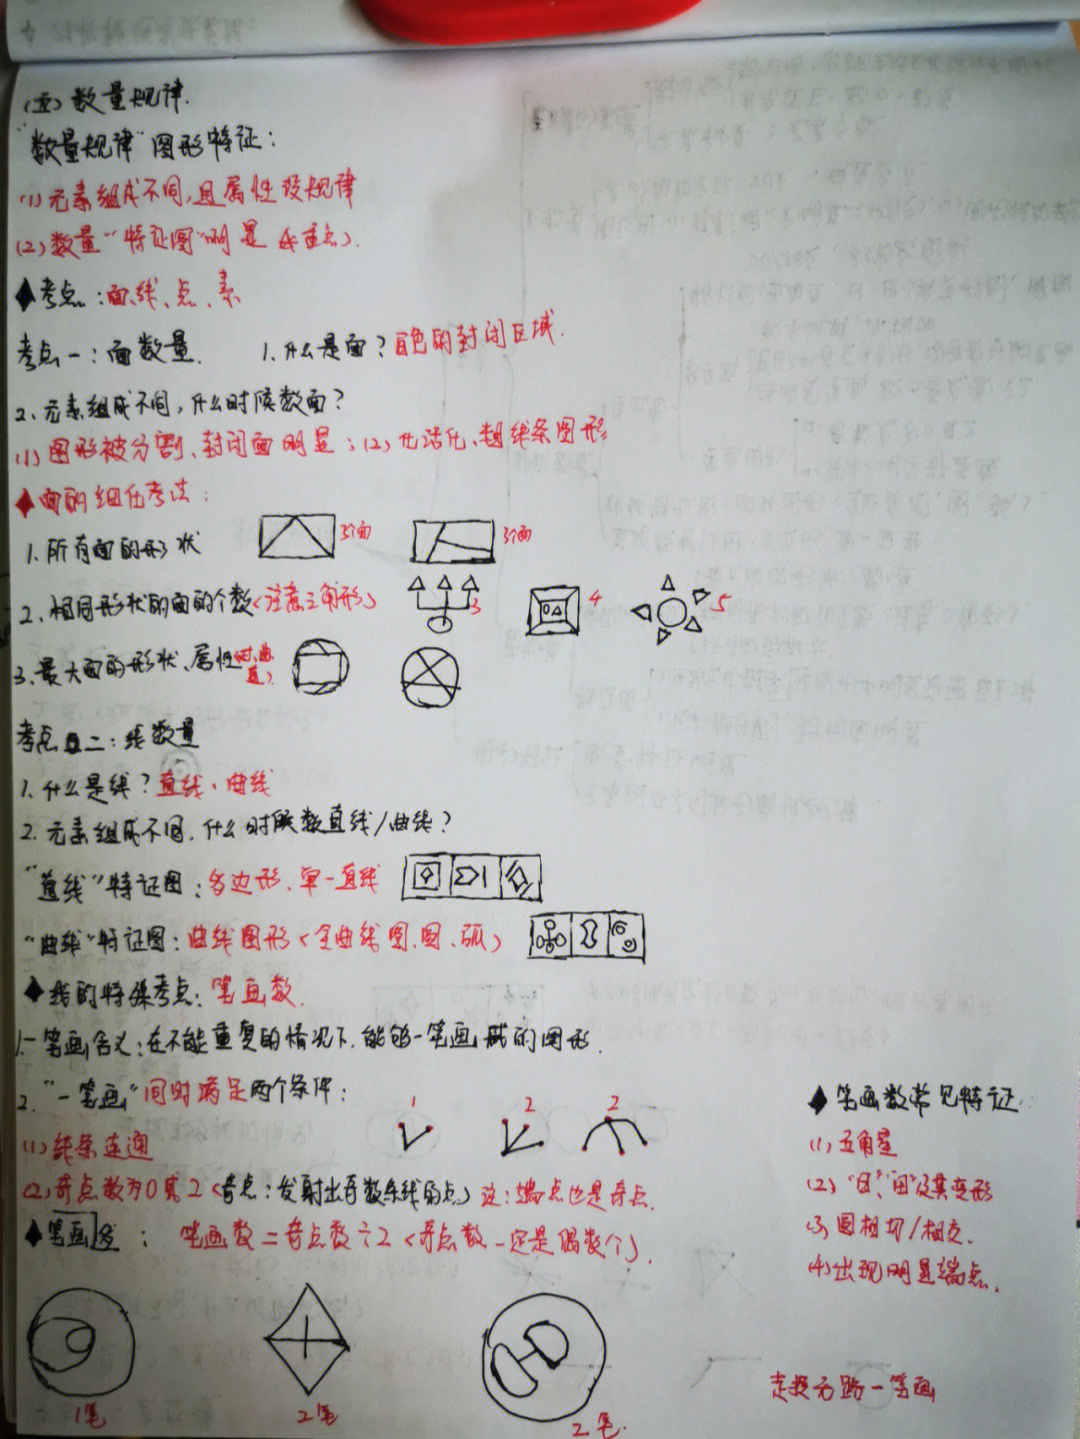 (五) 数量规律.
"数量规律"图形特征:
(1) 元素组成不同,且属性没规律
(2) 数量"特征图"明显 (重点).
◆考点:面、线、点、素
考点一:面数量. 1.什么是面?白色的封闭区域.
2、元素组成不同,什么时候数面?
(1) 图形被分割、封闭面明显;(2)、粗线条图形
◆面的细化考法:
1.所有面的形状 3个面 3个面
2、相同形状的面的个数<注意三角形> 3 4 5
3、最大面的形状、属性
考点二:线数量
1.什么是线?直线、曲线
2.元素组成不同.什么时候数直线/曲线?
"直线"特征图:多边形、单一直线
"曲线"特征图:曲线图形<全曲线图、圆、弧>
◆线的特殊考点:笔画数.
1.一笔画含义:在不能重复的情况下,能够一笔画成的图形.
2."一笔画"同时满足两个条件: 1 2 2
(1) 线条连通
(2) 奇点数为0或2<奇点:发射出奇数条线的点>注:端点也是奇点.
◆笔画: 笔画数=奇点数÷2<奇点数一定是偶数个>.
1笔 2笔 2笔.
◆笔画数常见特征:
(1) 五角星
(2) "日"、"田"及其变形
(3) 圆相切/相交.
(4) 出现明显端点.
走投无路一笔画